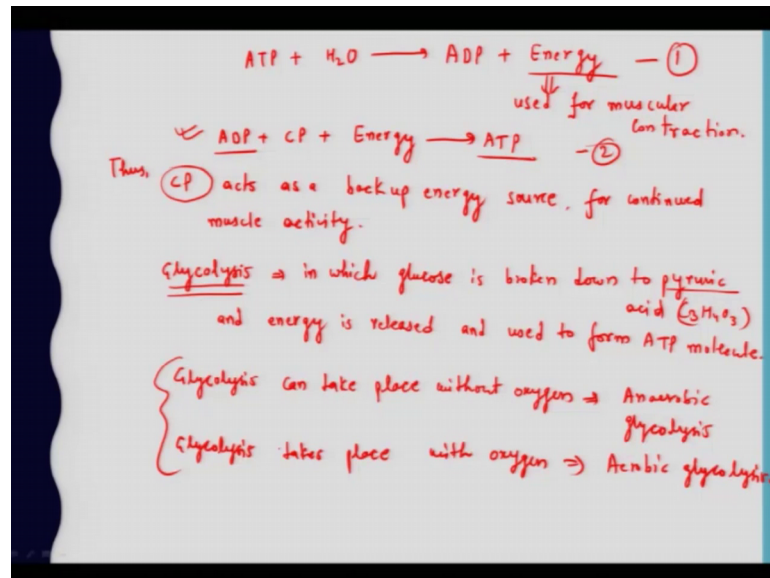 ATP + H₂O ⟶ ADP + Energy — ①
⇓
used for muscular
contraction.
ADP + CP + Energy ⟶ ATP — ②
Thus, CP acts as a back up energy source, for continued
muscle activity.
Glycolysis ⇒ in which glucose is broken down to pyruvic
acid (C₃H₄O₃)
and energy is released and used to form ATP molecule.
Glycolysis can take place without oxygen ⇒ Anaerobic
glycolysis
Glycolysis takes place with oxygen ⇒ Aerobic glycolysis.